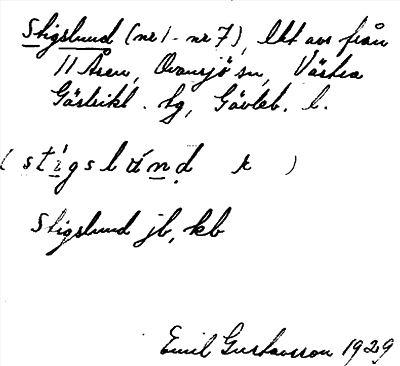 Stigslund (nr 1 - nr 7), lht avs från
11 Åsen, Ovansjö sn, Västra
Gästrikl. hg, Gävleb. l.
(stígslúnḍ k )
Stigslund jb, kb
Emil Gustavsson 1929